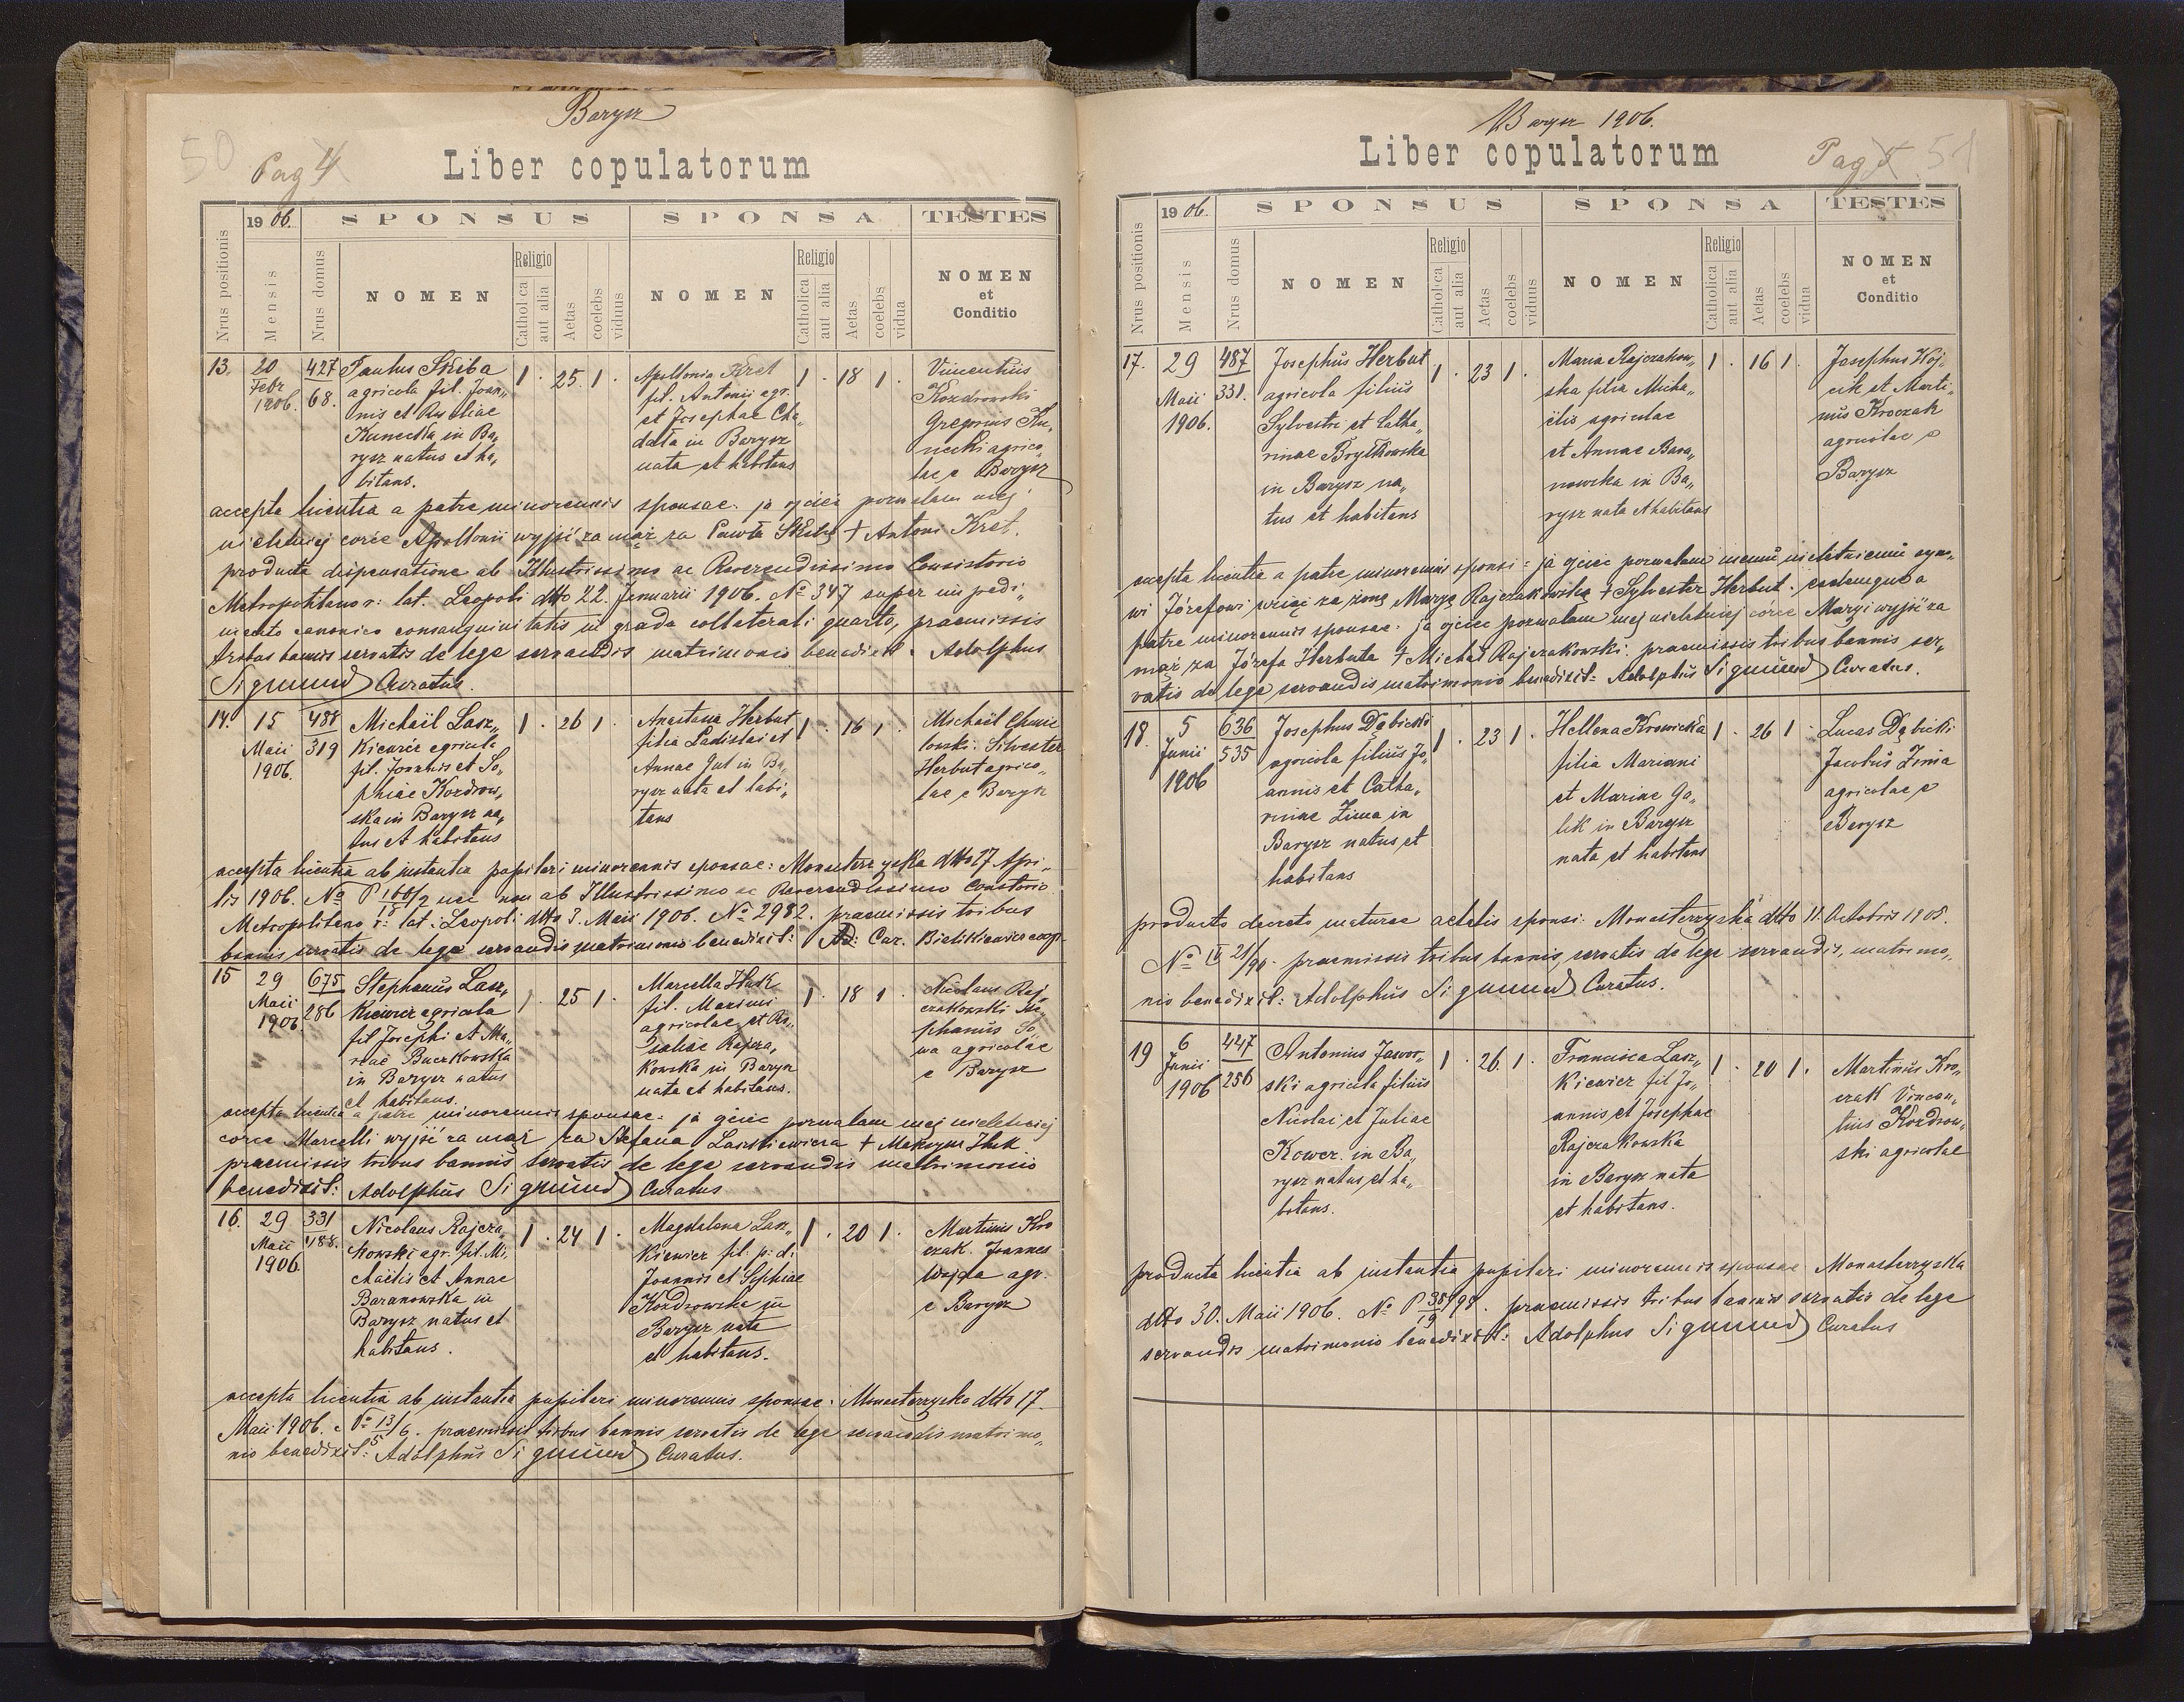 Barysz
50
Pag 4
Liber copulatorum
Nrus positionis
1906.
Mensis
Nrus domus
SPONSUS
NOMEN
Religio
Catholica
aut alia
Aetas
coelebs
viduus
SPONSA
NOMEN
Religio
Catholica
aut alia
Aetas
coelebs
vidua
TESTES
NOMEN
et
Conditio
13. 20 Febr 1906. 427 68.
Paulus Skiba
agricola fil. Joan„
nis et Rosaliae
Kunecka in Ba„
rysz natus et ha„
bitans.
1 . 25 . 1 .
Apollonia Kret
fil. Antonii agr.
et Josephae Cha„
data in Barysz
nata et habitans
1 . 18 1 .
Vincentius
Kozdrowski
Gregorius Ku„
necki agrico„
lae e Barysz
accepta licentia a patre minorennis sponsae. ja ojciec pozwalam mej
nieletniej córce Apollonii wyjść za mąż za Pawła Skibę + Antoni Kret.
producta dispensatione ab Illustrissimo ac Reverendissimo Consistorio
Metropolitano r: lat. Leopoli dtto 22. Januarii 1906. No 347 super impedi„
mento canonico consanguinitatis in gradu collaterali quarto, praemissis
tribus bannis servatis de lege servandis matrimonio benedixit. Adolphus
Sigmund Curatus.
14. 15 Maii 1906. 488 319
Michaël Lasz„
kiewicz agricola
fil. Joannis et So„
phiae Kozdrow„
ska in Barysz na„
tus et habitans
1 . 26 1 .
Anastasia Herbut
filia Ladislai et
Annae Gut in Ba„
rysz nata et habi„
tans
1 . 16 1 .
Michaël Chmie
lowski. Silvester
Herbut agrico„
lae e Barysz
accepta licentia ab instantia pupilari minorennis sponsae: Monasterzyska dtto 17 Apri„
lis 1906. No P 160/2 18 nec non ab Illustrissimo ac Reverendissimo Constorio
Metropolitano r: lat: Leopoli dtto 3. Maii 1906. No 2982. praemissis tribus
bannis servatis de lege servandis matrimonio benedixit: Ad: Cur. Bielikiewicz coop.
15 29 Maii 1906 675 286
Stephanus Lasz„
kiewicz agricola
fil Josephi et Ma„
riae Buczkowska
in Barysz natus
et habitans.
1 . 25 1 .
Marcella Huk
fil. Maximi
agricolae et Ro„
saliae Rajcza„
kowska in Barysz
nata et habitans.
1 . 18 1 .
Nicolaus Raj
czakowski Ste„
phanus So„
wa agricolae
e Barysz
accepta licentia a patre minorennis sponsae. ja ojciec pozwalam mej nieletniej
córce Marcelli wyjść za mąż za Stefana Laszkiewicza + Maksym Huk
praemissis tribus bannis servatis de lege servandis matrimonio
benedixit: Adolphus Sigmund Curatus
16. 29 Maii 1906. 331 488.
Nicolaus Rajcza„
kowski agr. fil. Mi„
chaëlis et Annae
Baranowska in
Barysz natus et
habitans.
1 . 24 1 .
Magdalena Lasz„
kiewicz fil. p. d.
Joannis et Sophiae
Kozdrowska in
Barysz nata
et habitans.
1 . 20 1 .
Martinus Kro
czak. Joannes
Wojda agr.
e Barysz
accepta licentia ab instantia pupilari minorennis sponsae. Monasterzyska dtto 17.
Maii 1906. No 13/6 5 . praemissis tribus bannis servatis de lege servandis matrimo„
nio benedixit: Adolphus Sigmund Curatus.
Barysz 1906.
Liber copulatorum
Pag 5
51
Nrus positionis
1906.
Mensis
Nrus domus
SPONSUS
NOMEN
Religio
Catholica
aut alia
Aetas
coelebs
viduus
SPONSA
NOMEN
Religio
Catholica
aut alia
Aetas
coelebs
vidua
TESTES
NOMEN
et
Conditio
17. 29 Maii 1906. 487 331.
Josephus Herbut
agricola filius
Sylvestri et Catha„
rinae Brytkowska
in Barysz na„
tus et habitans
1 . 23 1 .
Maria Rajczakow„
ska filia Micha„
ëlis agricolae
et Annae Bara„
nowska in Ba„
rysz nata et habitans
1 . 16 1 .
Josephus Woj„
cik et Marti„
nus Kroczak
agricolae e
Barysz
accepta licentia a patre minorennis sponsi = ja ojciec pozwalam memu nieletniemu syno„
wi Józefowi wziąć za żonę Maryę Rajczakowską + Sylvester Herbut. eademque a
patre minorennis sponsae. ja ojciec pozwalam mej nieletniej córce Maryi wyjść za
mąż za Józefa Herbuta + Michał Rajczakowski. praemissis tribus bannis ser„
vatis de lege servandis matrimonio benedixit: Adolphus Sigmund Curatus.
18. 5 Junii 1906 636 535
Josephus Dąbicki
agricola filius Jo„
annis et Catha„
rinae Zima in
Barysz natus et
habitans
1 . 23 1 .
Hellena Krowicka
filia Mariani
et Mariae Ga„
lik in Barysz
nata et habitans
1 . 26 1 .
Lucas Dąbicki
Jacobus Zima
agricolae e
Barysz
producto decreto maturae aetatis sponsi: Monasterzyska dtto 11. Octobris 1905.
No IV 21/90. praemissis tribus bannis, servatis de lege servandis, matrimo„
nio benedixit: Adolphus Sigmund Curatus.
19 6 Junii 1906 447 256
Antonius Jawor„
ski agricola filius
Nicolai et Juliae
Kower. in Ba„
rysz natus et ha„
bitans.
1 . 26. 1 .
Francisca Lasz„
kiewicz fil Jo„
annis et Josephae
Rajczakowska
in Barysz nata
et habitans.
1 . 20 1 .
Martinus Kro„
czak Vincen„
tius Kozdrow„
ski agricolae
producta licentia ab instantia pupilari minorennis sponsae Monasterzyska
dtto 30. Maii 1906. No P 38/99 19. praemissis tribus bannis servatis de lege
servandis matrimonio benedixit: Adolphus Sigmund Curatus